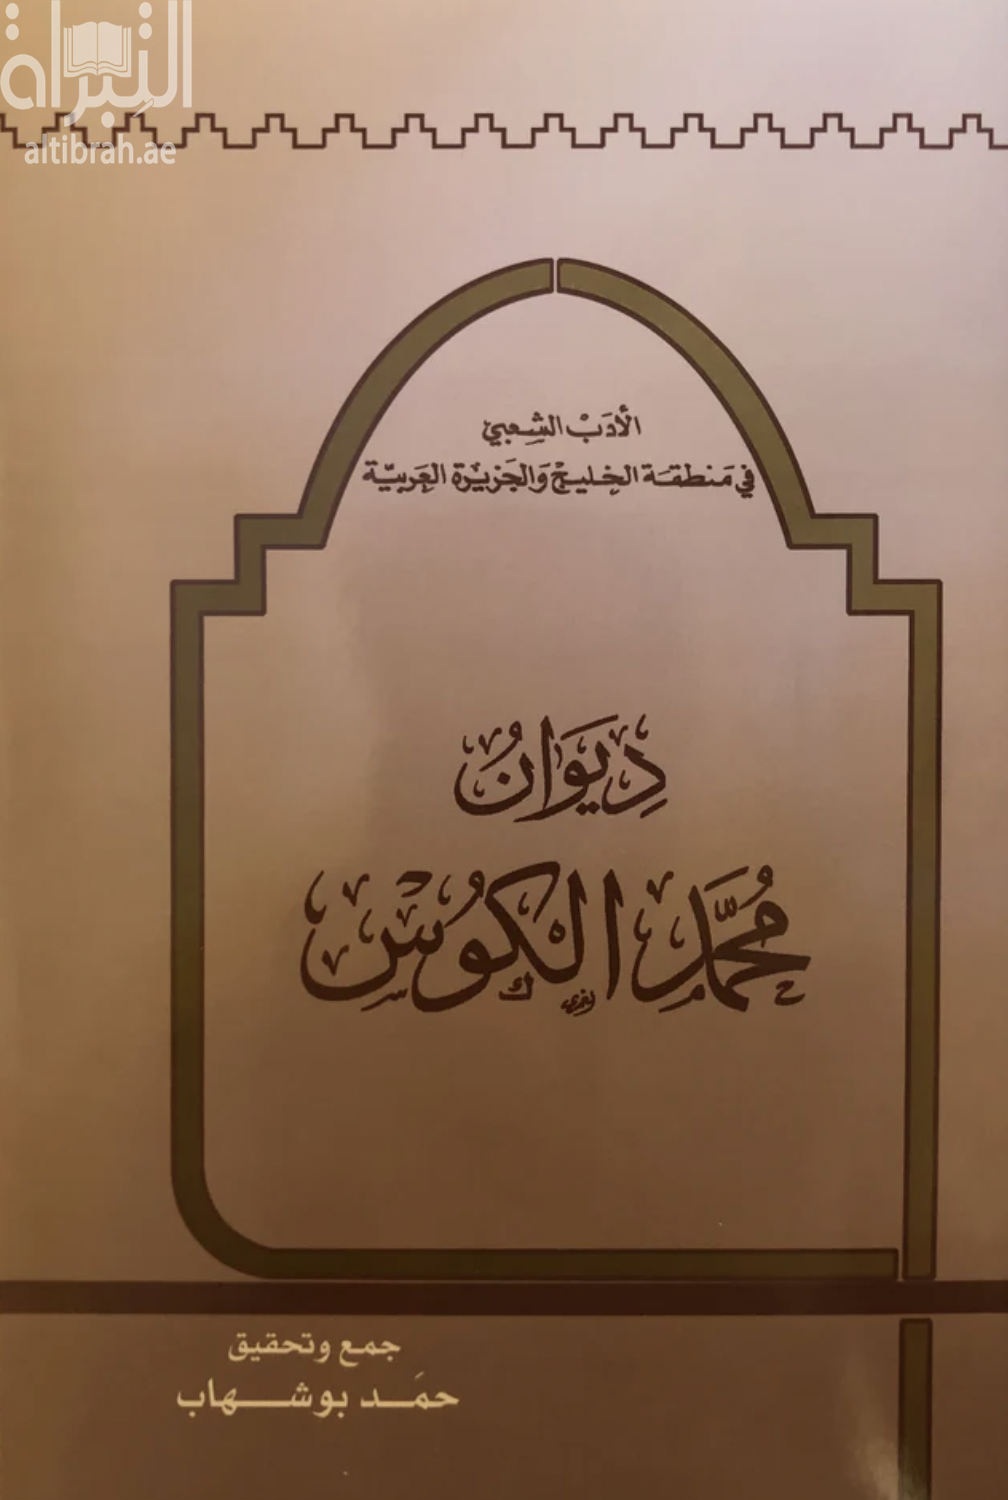 التبراة
altibrah.ae
الأَدَبْ الشِعبيّ
في مَنطقَة الخليج وَالجَزيْرَة العَربيّة
دِيوَانُ
مُحمَّد الكوُسْ
جمع وتحقيق
حمَد بوشهاب